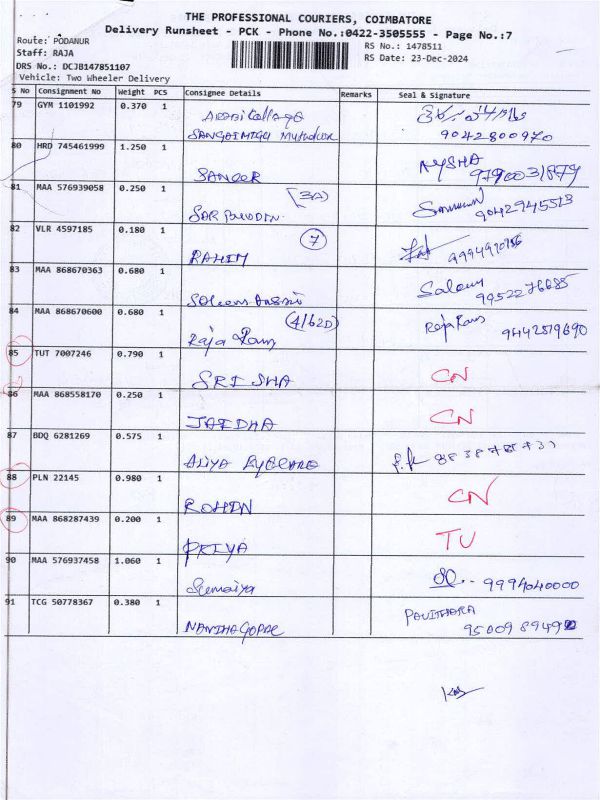 THE PROFESSIONAL COURIERS, COIMBATORE
Delivery Runsheet - PCK - Phone No.:0422-3505555 - Page No.:7
Route: PODANUR
RS No.: 1478511
Staff: RAJA
RS Date: 23-Dec-2024
DRS No.: DCJB147851107
Vehicle: Two Wheeler Delivery
S No Consignment No Weight PCS Consignee Details Remarks Seal & Signature
79 GYM 1101992 0.370 1
9042800970
80 HRD 745461999 1.250 1 AYSHA
SANOOR
81 MAA 576939058 0.250 1 (3A)
9042945513
82 VLR 4597185 0.180 1 7
RAHIM
83 MAA 868670363 0.680 1
9952276685
84 MAA 868670600 0.680 1 (4/62D) Raja Ram
Raja Ram 9442519690
85 TUT 7007246 0.790 1 CN
SRI SHA
86 MAA 868558170 0.250 1 CN
87 BDQ 6281269 0.575 1
ALIYA EYECARE
88 PLN 22145 0.980 1 CN
ROHIN
89 MAA 868287439 0.200 1 TU
PRIYA
90 MAA 576937458 1.060 1 9994040000
Sumaiya
91 TCG 50778367 0.380 1 PAVITHARA
NANTHAGOPAL